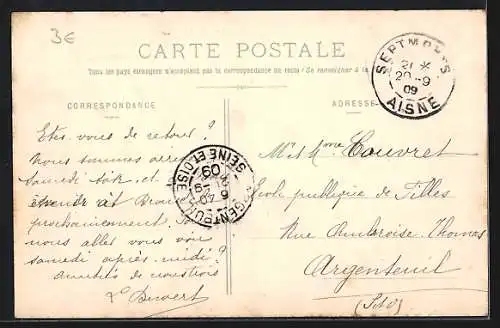 3€
CARTE POSTALE
Tous les pays étrangers n'acceptent pas la correspondance au recto (Se renseigner à la
CORRESPONDANCE
ADRESSE
SEPTMONTS
21 *
20 - 9
09
AISNE
ARGENTEUIL
21 - 9
09
SEINE ET OISE
Etes vous de retour ?
Nous sommes
samedi soir et
prochainement.
nous allez vous voir
samedi après-midi ?
amitiés de nous trois
L. Buvert
M. et Mme Couvret
Ecole publique de Filles
Rue Ambroise Thomas
Argenteuil
(S et O)